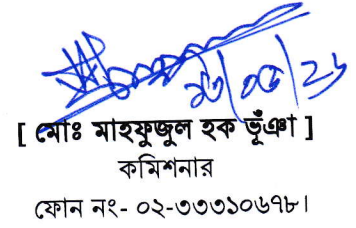 [ মোঃ মাহফুজুল হক ভূঁঞা ]
কমিশনার
ফোন নং- ০২-৩৩৩১০৬৭৮।